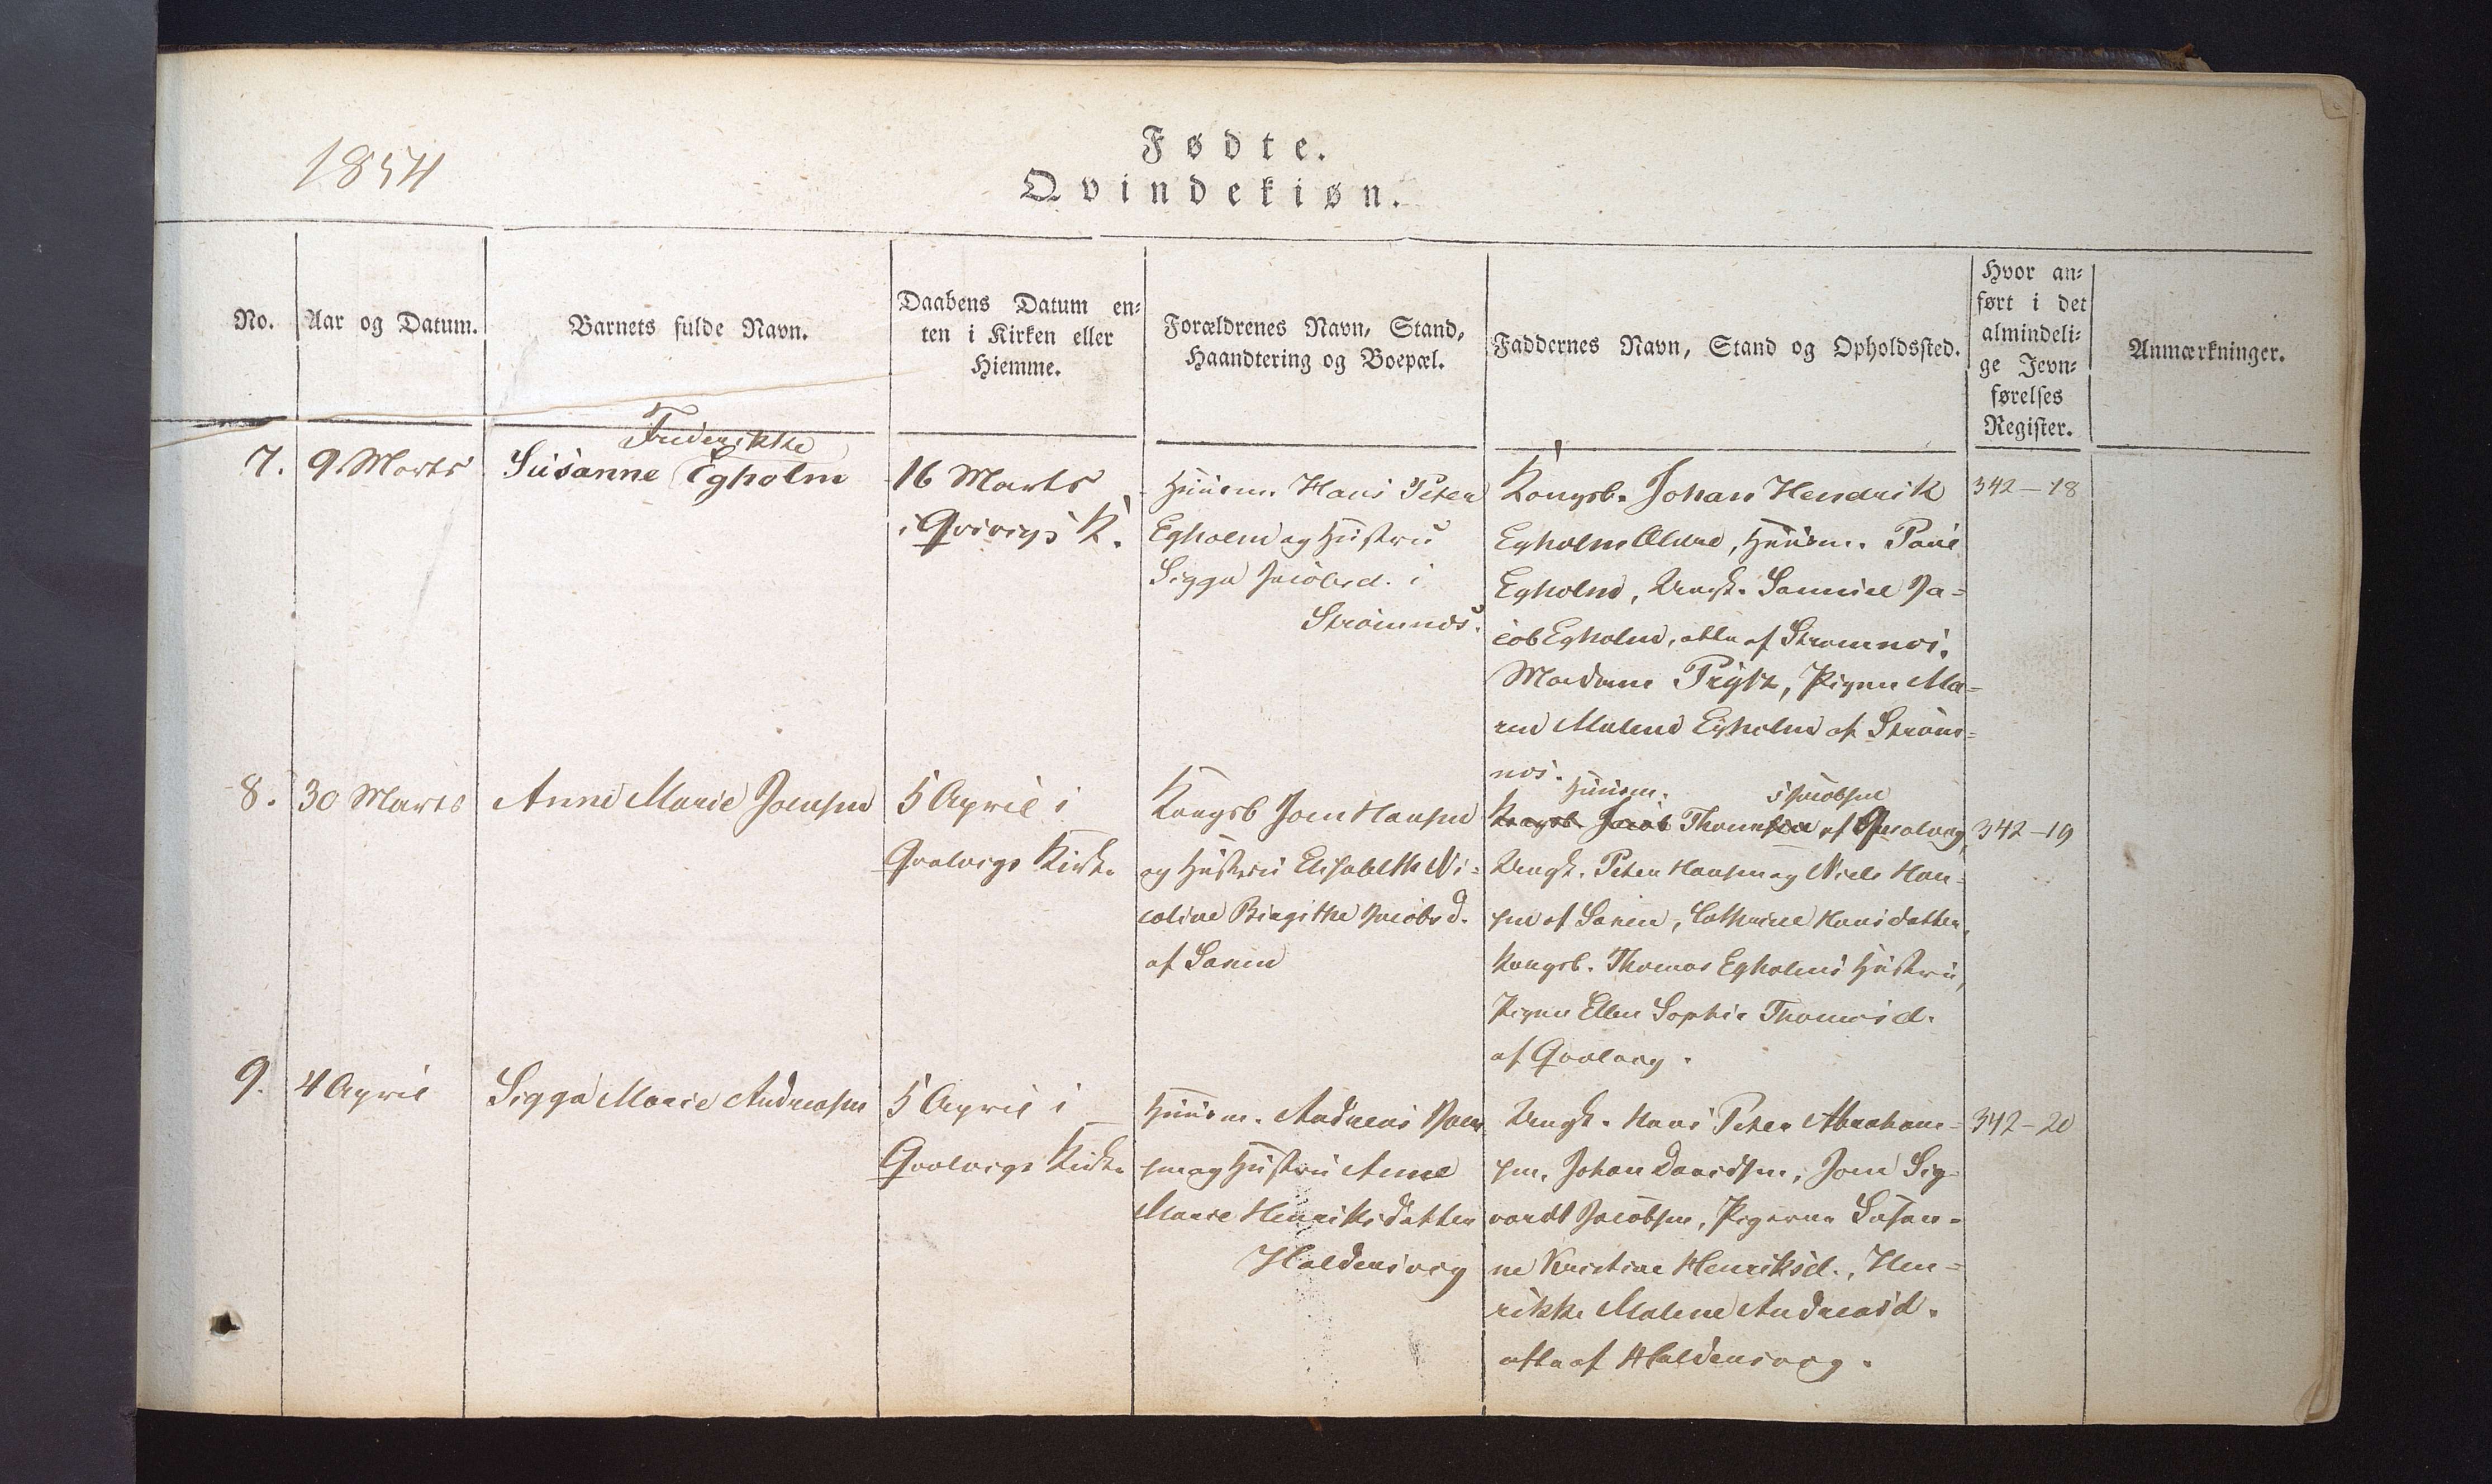 1854
Fødte.
Qvindekiøn.
No.
Aar og Datum.
Barnets fulde Navn.
Daabens Datum en-
ten i Kirken eller
Hiemme.
Forældrenes Navn, Stand,
Haandtering og Boepæl.
Faddernes Navn, Stand og Opholdssted.
Hvor an-
ført i det
almindeli-
ge Jevn-
førelses
Register.
Anmærkninger.
7.
9 Marts
Frederikke
Susanne Egholm
16 Marts
i K.
Huusm. Hans Peter
Egholm og Hustru
Sigga Jacobsd. i
Strømnæs.
Kongsb. Johan Hendrik
Egholm Oline, Huusm. Poul
Egholm, Ungk. Samuel Ja-
cob Egholm, alle af Strømnæs.
Madame Prytz, Pigen Ma-
ren Malene Egholm af Strøm-
næs.
342-18
8.
30 Marts
Anne Marie Joensen
5 April i
Qvalvigs Kirke
Kongsb Joen Hansen
og Hustru Elisabeth Ni-
coline Birgithe Jacobsd.
af Saxen
Huusm. Jacobsen
Kongsb. Jacob Thomsen af Qvalvig,
Ungk. Peter Hansen og Niels Han-
sen af Saxen, Cathrine Hansdatter,
Kongsb. Thomas Egholms Hustru,
Pigen Ellen Sophie Thomasd.
af Qvalvig.
342-19
9.
4 April
Sigga Marie Andreasen
5 April i
Qvalvigs Kirke
Huusm. Andreas Joen-
sen og Hustru Anne
Marie Henriksdatter
Haldersvig
Ungk. Hans Peter Abraham-
sen, Johan Davidsen, Joen Sig-
vardt Jacobsen, Pigerne Susan-
ne Kristine Henriksd., Hen-
rikke Malene Andreasd.
alle af Haldersvig.
342-20